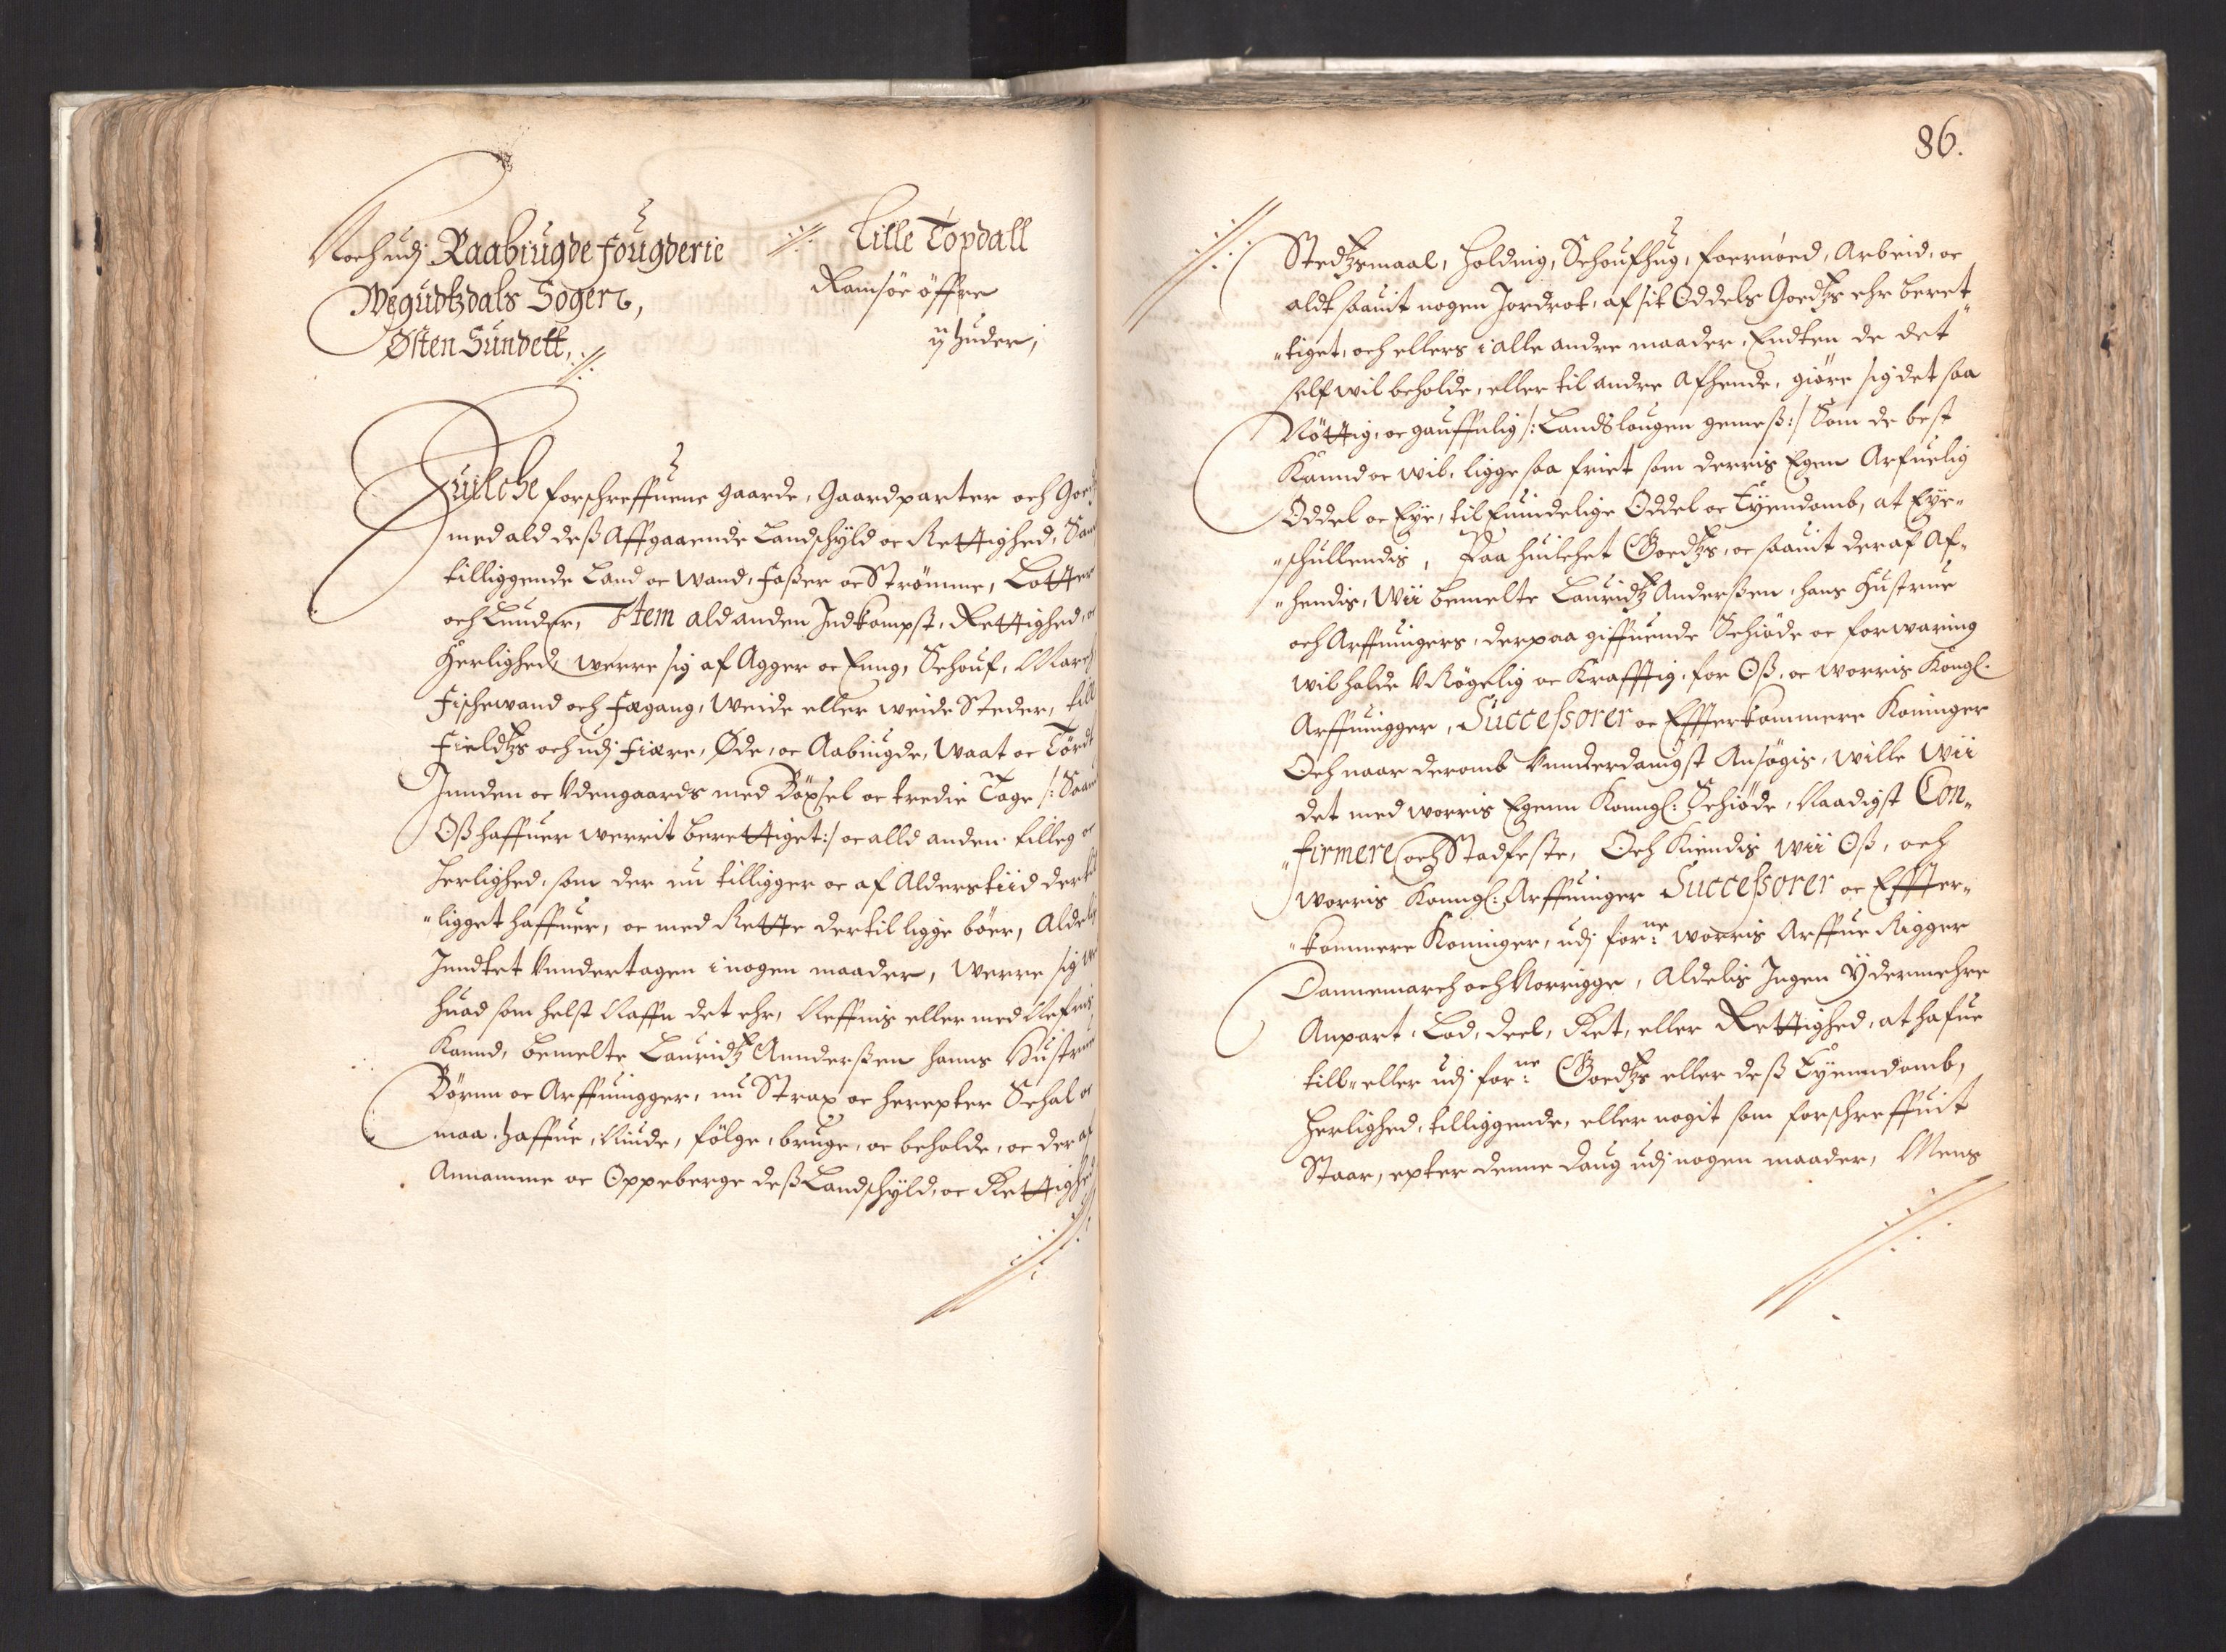 Noch udj Raabiugde fougderie
Wegudtzdals Sogen,
Østen Sundett,
Lille Topdall
Ramsöe öffre
ij huder,
Huilche forschreffuene gaarde, Gaardparter och Goedtz
med ald dess Affgaaende Landschyld oc Rettighed, Samt
tilliggende Land oc Wand, Fosser oc Strömme, Lotter
och Lunder, Item ald anden Indkompst, Rettighed, oc
Herlighed, werre sig af Agger oc Enng, Schouf, March,
Fischewand och Fægang, Weide eller weide Steder, till
Fieldtzs och udj Fiære, Øde, oc Aabiugde, Waat oc Tördt
Innden oc Udengaards med Böxsel oc tredie Tage /: Saauit
Oss haffuer werrit berettiget :/ oc alld anden tilleg oc
Herlighed, som der nu tilligger oc af Alderstiid dertil
ligget haffuer, oc med Rette dertil ligge böer, Aldelis
Inndtet Unndertagen i nogen maader, Werre sig
huad som helst Naffn det ehr, Neffnis eller med Nefnis
Kannd, bemelte Lauridtz Annderssen hanns Hustrue
Börnn oc Arffuingger, nu Strax oc herepter Schal oc
maa, haffue, Niude, følge, bruge, oc beholde, oc der af
Annamme oc Oppeberge dess Landschyld, oc Rettighed
86.
Stedtzsmaal, Holding, Schoufhug, foernöed, Arbeid, oc
aldt saauit nogen Jordrot, af sit Oddels Goedtzs ehr beret-
tiget, och ellers i alle andre maader, Endten de det
self wil beholde, eller til andre Afhende, giöre sig det saa
Nöttig, oc gauffnlig /: Landslougen gemess :/ Som de best
Kannd oc wil, ligge saa friet som derris Egen Arfuelig
Oddel oc Eye, til Euindelige Oddel oc Eyendomb, at Eye-
schullendis, Paa huilchet Goedtzs, oc saauit deraf Af-
hendis, Wii bemelte Lauridtz Anderssen, hans Hustrue
och Arffuingers, derpaa giffuende Schiøde oc forwaring
wil holde U-Rögelig oc Krafftig, for Oss, oc worris Kongl.
Arffuingger, Successorer oc Effterkommere Koninger
Och naar deromb Unnderdanigst Ansögis, wille Wii
det med worris Egenn Konngl: Schiöde, Naadigst Con-
firmere och Stadfeste, Och Kiendis wii Oss, och
worris Konngl: Arffuinger Successorer oc Effter-
kommere Koninger, udj forne: worris Arffue Rigger
Dannemarch och Norrigge, Aldelis Ingen Ydermehre
Anpart, Lod, deel, Ret, eller Rettighed, at hafue
till- eller udj forne: Goedtzs eller dess Eyenndomb,
Herlighed, tilliggende, eller nogit som forschreffuit
Staar, epter denne daug udj nogen maader, Mens